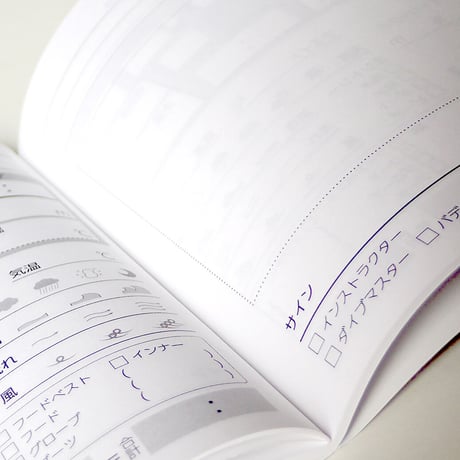 ℃
気温
℃
れ
風
インナー
フードベスト
フード
グローブ
ーツ
サイン
インストラクター
バデ
ダイブマスター